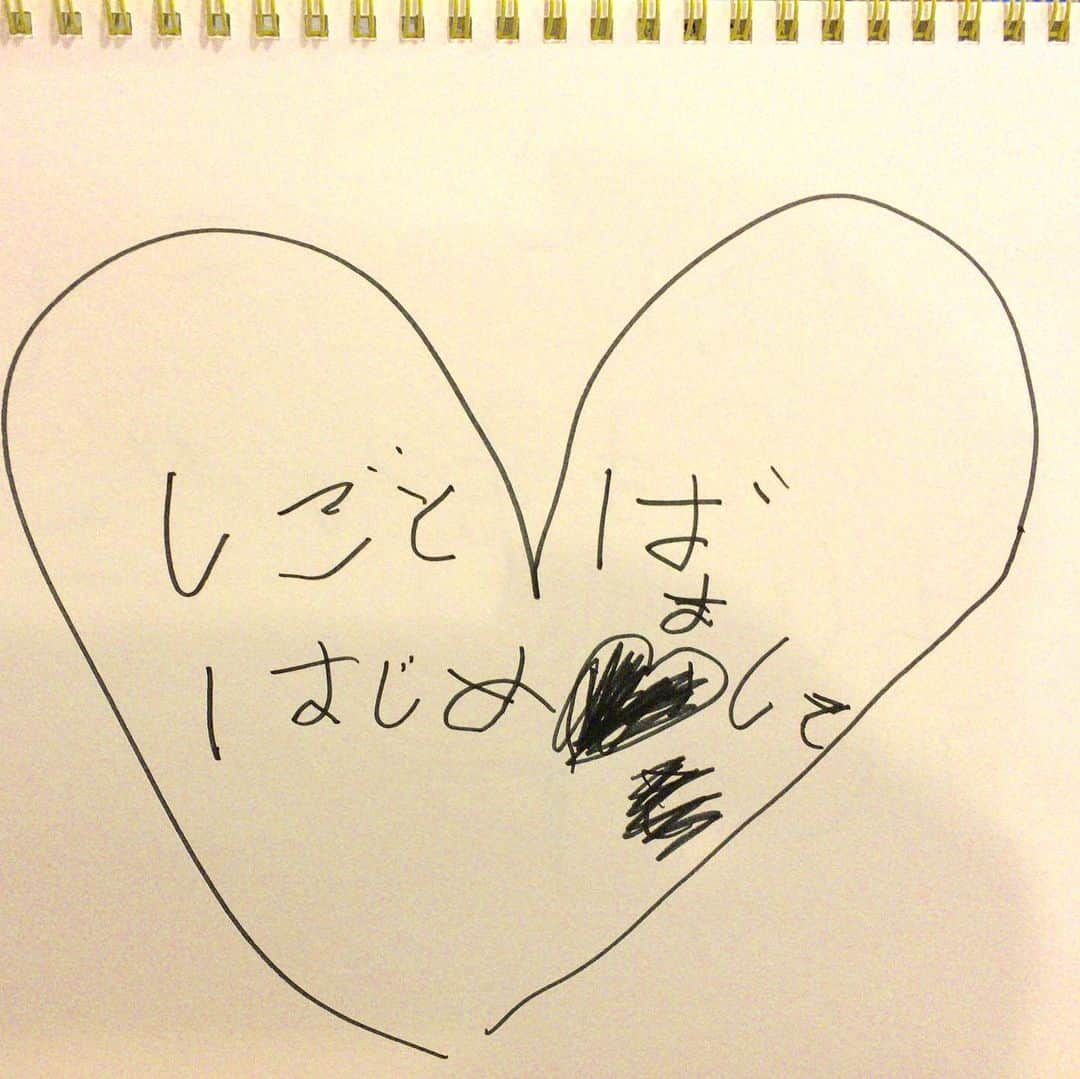 しごと ば
ま
はじめ して